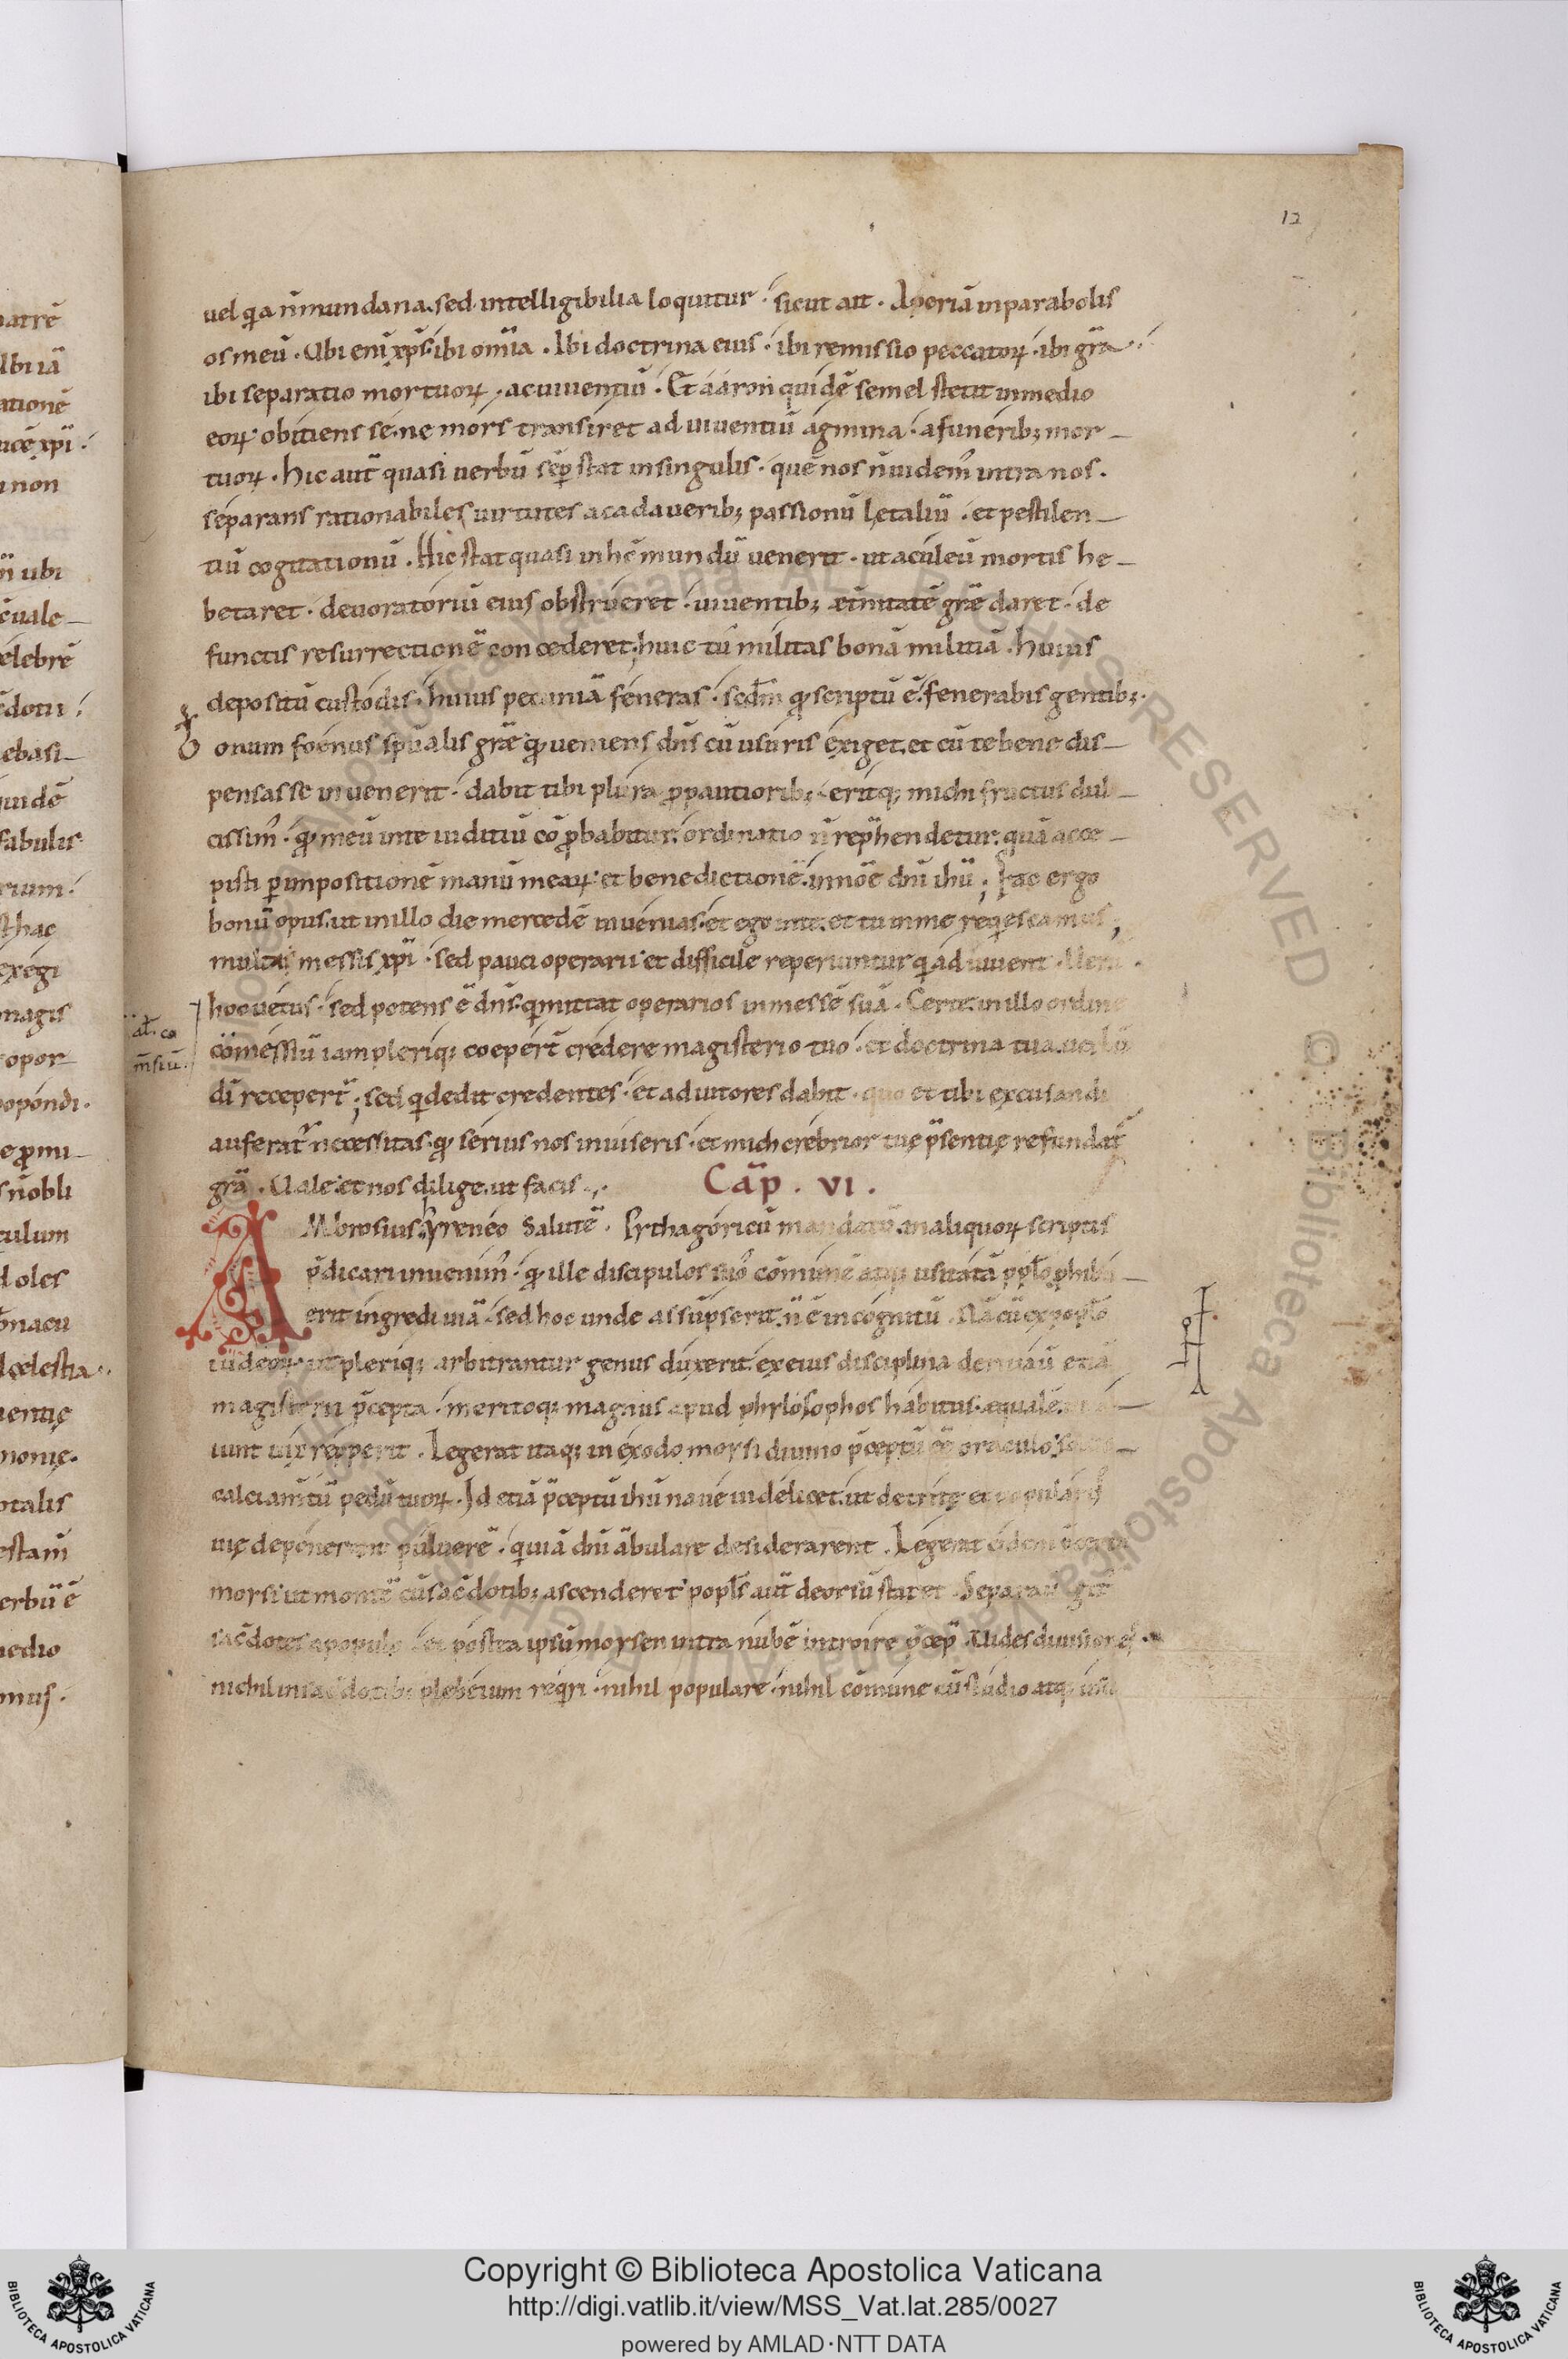 12
uel q̇a n̄ mundana. sed intelligibilia loquitur. sicut ait. Aperiā in parabolis
os meū. Ubi eni xp̄s. ibi om̄ia. Ibi doctrina eius. ibi remissio peccatoꝝ. ibi gr̄a.
ibi separatio mortuoꝝ. ac uiuentiū. Et aaron quidē semel stetit in medio
eoꝝ obitiens se. ne mors transiret ad uiuentiū agmina. a funerib; mor-
tuoꝝ. hic aut̄ quasi uerbū sēp stat in singulis. quē nos n̄ uidem᷒ intra nos.
separans rationabiles uirtutes a cadauerib; passionū lętaliū. et pestilen-
tiū cogitationū. Hic stat quasi in hc̄ mundū uenerit. ut aculeū mortis he-
betaret. deuoratoriū eius obstrueret. uiuentib; et̄nitatē gr̄ę daret. de
functis resurrectionē concederet; huic tū militas bonā militiā. huius
depositū custodis. huius pecuniā feneras. scd̄m qđ scriptū ē. fenerabis gentib;.
Bonum foenus sp̄ualis gr̄ę qđ ueniens dn̄s cū usuris exiget. et cū te bene dis-
pensasse inuenerit. dabit tibi plura ꝓ pautiorib; eritq; michi fructus dul-
cissim᷒. qđ meū in te iuditiū cōꝓbabitur. ordinatio n̄ rep̄hendetur. quā acce-
pisti ꝑ impositionē manū mearꝝ et benedictionē. in nōe dn̄i ihū; Fac ergo
bonū opus. ut in illo die mercedē inuenias. et ego in te. et tu in me reqescamus;
multa messis xp̄i. sed pauci operarii et difficile reperiuntur q̇ adiuuent.
hoc uetus. sed potens ē dn̄s. q̇ mittat operarios in messē suā. Certe. in illo ordine
al. co
m̄siū.
comessiū iam pleriq; coeper̄t credere magisterio tuo. et doctrina tua.
dī receper̄t; sed q̇ dedit credentes. et adiutores dabit. quo et tibi excusandi
auferat᷒ necessitas. qđ serius nos inuiseris. et mich crebrior tuę p̄sentię refundat᷒
gr̄a. Uale et nos dilige. ut facis.
Cap̄. VI.
AMbrosius hyreneo Salutē. Pythagoricū mandatū. in aliquoꝝ scriptis
p̄dicari inuenim᷒. qđ ille discipulos suos cōmunē atq; usitatā pp̄lo phibu-
erit ingredi uiā. sed hoc unde assūpserit. n̄ ē incognitū. Nā cū ex pop̄lo
iudeoꝝ. ut pleriq; arbitrantur genus duxerit. ex eius disciplina deriuauī etiā
magisterii p̄cepta. meritoq; magnus apud phylosophos habitus. equalē
iunt uix repperit. Legerat itaq; in exodo moysi diuino p̄ceptū eē oraculo.
calciam̄tū pedū tuoꝝ. Id etiā p̄ceptū ihū naue uidelicet. ut detritę et popularis
uię deponerent puluerē. q̇ uiā dn̄i ābulare desiderarent. Legerat
moysi ut montē cū sac̄dotib; ascenderet popl̄s aut̄ deorsū staret. Separat
sac̄dotes a populo. et postea ipsū moysen intra nubē introire p̄cep̄. Uides diuisiones.
nichil in sac̄dotib; plebeium reqri. nihil populare. nihil cōmune cū studio atq; usu
patrē
Ubi iā
ationē
xp̄i.
non
n̄ ubi
ēuale-
elebrē
c̄dotii
ebasi-
uidē
fabulis
rium.
exegi
magis
opor-
pondi.
tulum
oles
lcęlestia.
uentię
monię.
otalis
estam̄
erbū ē
medio
mus.
Copyright © Biblioteca Apostolica Vaticana
http://digi.vatlib.it/view/MSS_Vat.lat.285/0027
powered by AMLAD·NTT DATA
BIBLIOTECA APOSTOLICA VATICANA
BIBLIOTECA APOSTOLICA VATICANA